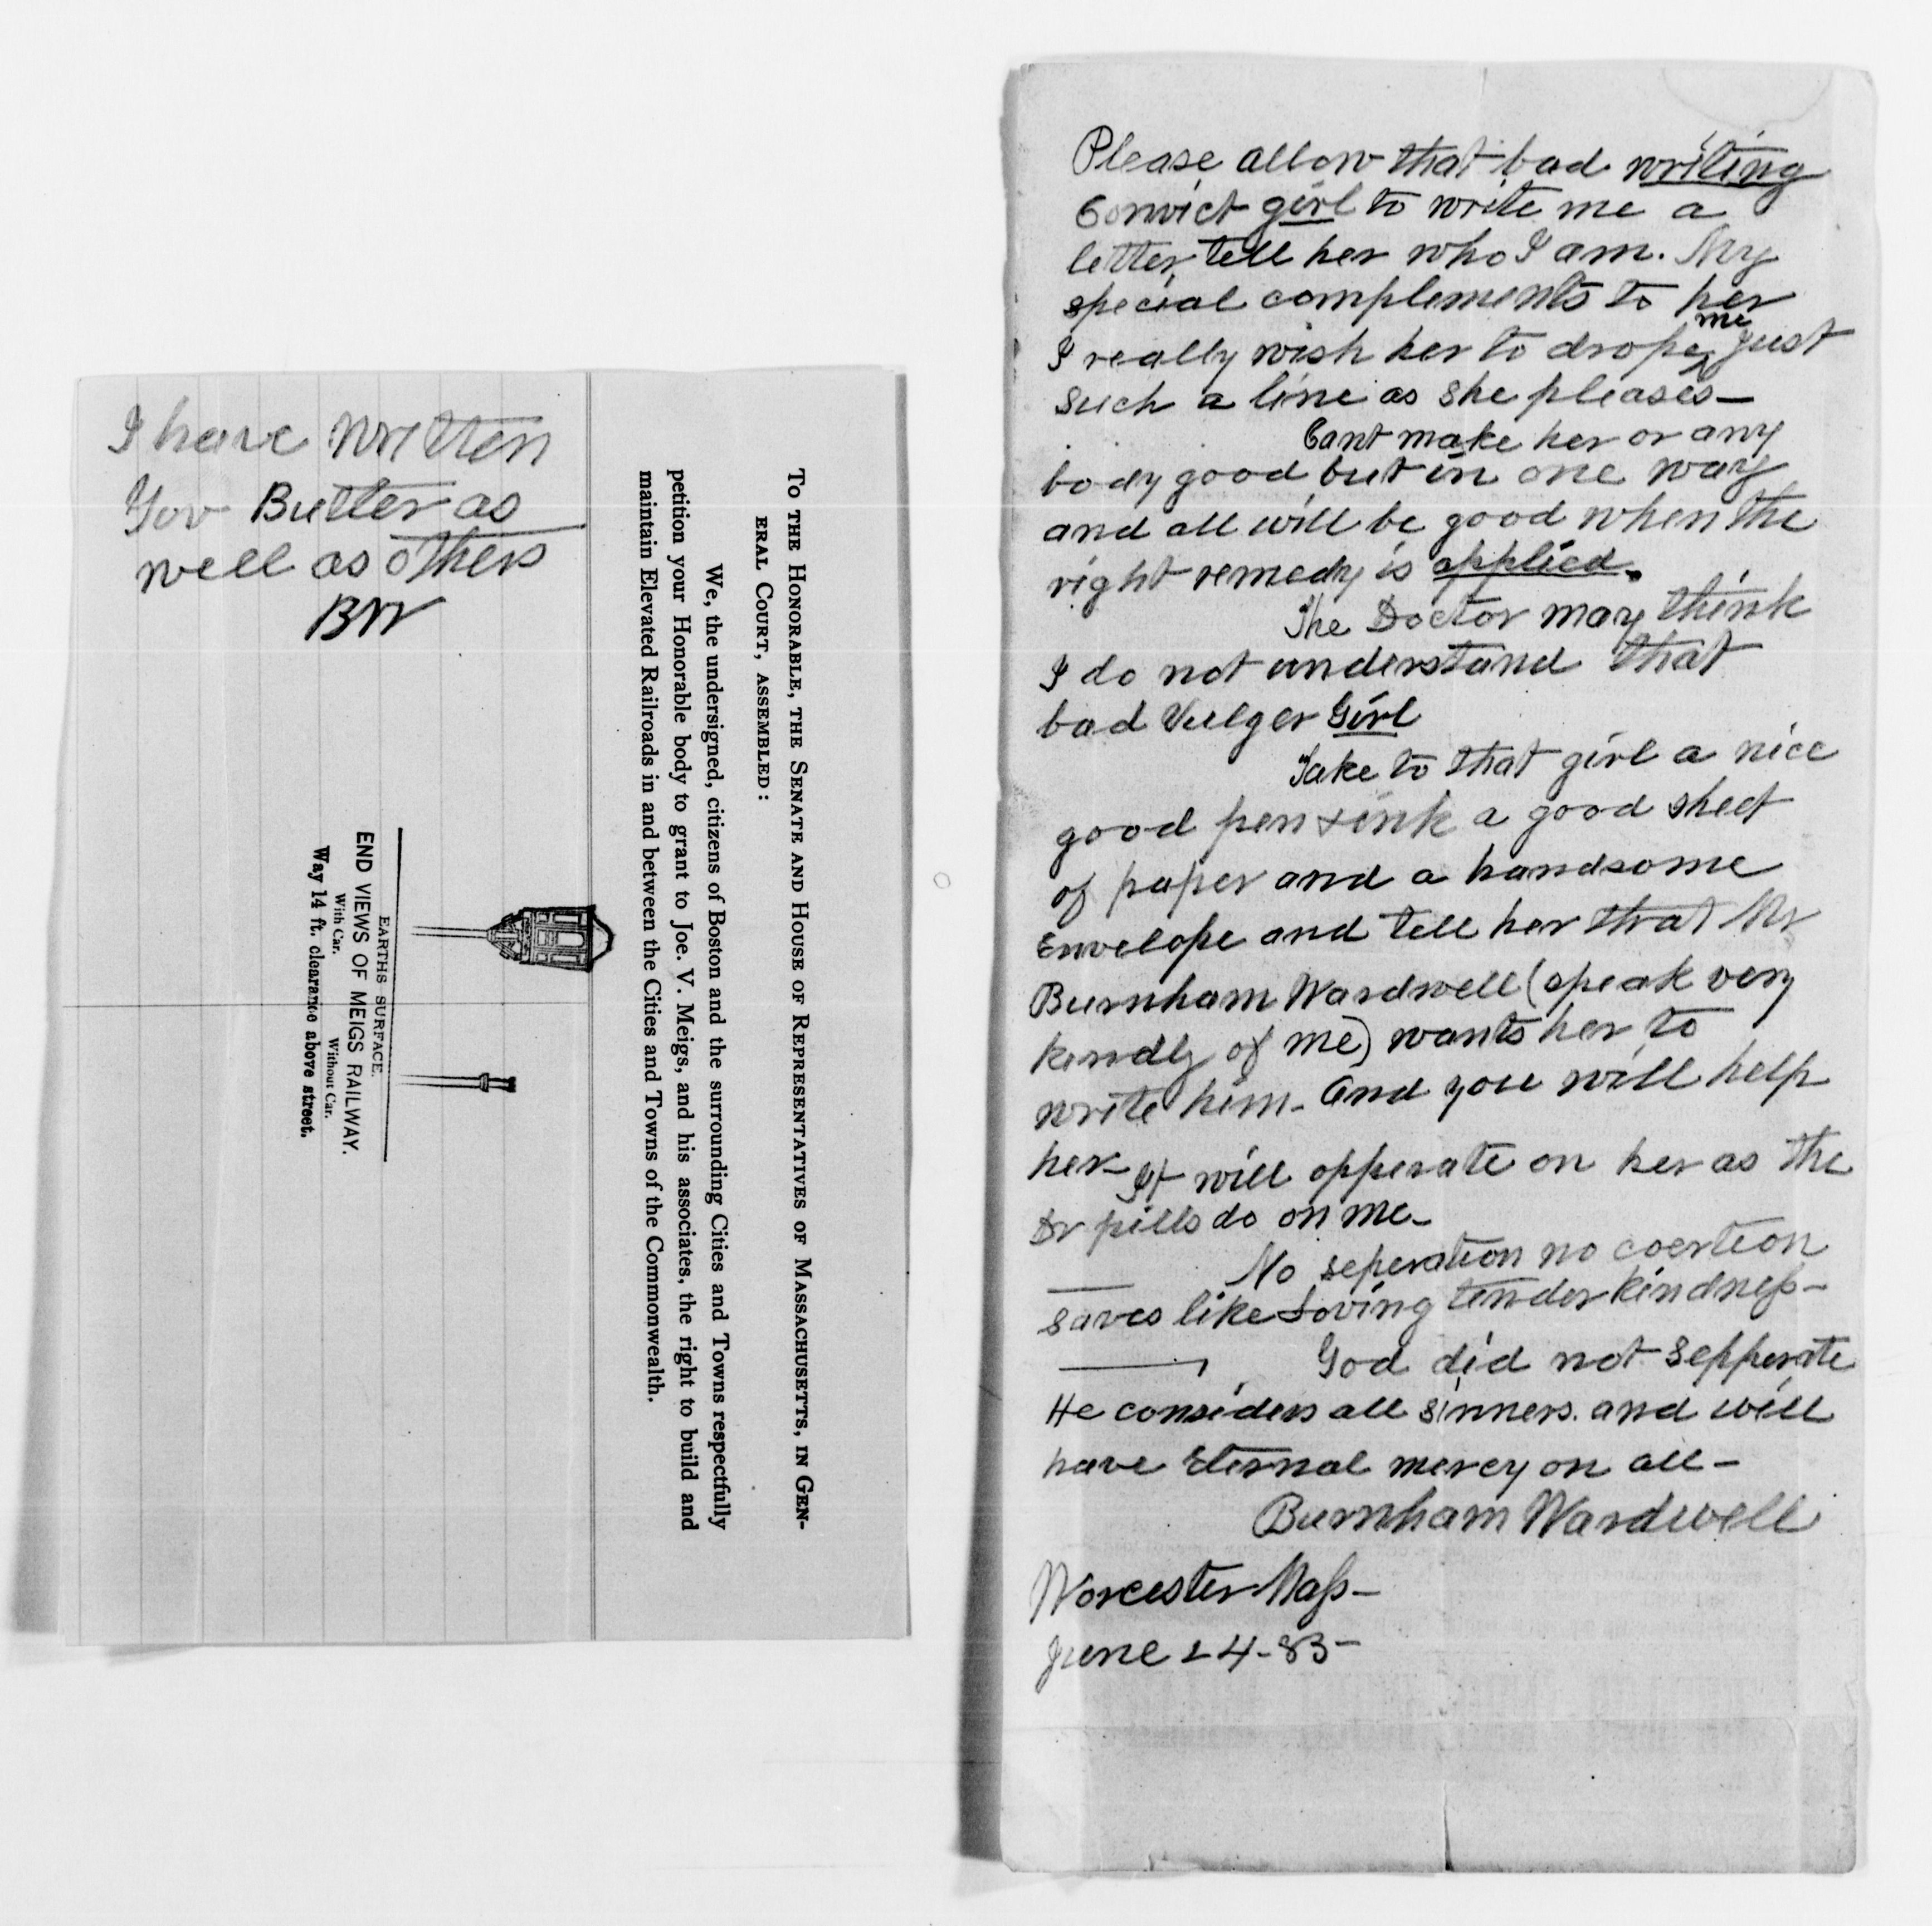 I have written
Gov Butler as
well as others
BW
To the Honorable, the Senate and House of Representatives of Massachusetts, in Gen-
eral Court, assembled:
We, the undersigned, citizens of Boston and the surrounding Cities and Towns respectfully
petition your Honorable body to grant to Joe. V. Meigs, and his associates, the right to build and
maintain Elevated Railroads in and between the Cities and Towns of the Commonwealth.
EARTHS SURFACE.
END VIEWS OF MEIGS RAILWAY.
With Car. Without Car.
Way 14 ft. clearance above street.
Please allow that bad writing
Convict girl to write me a
letter, tell her who I am. My
special complements to her
I really wish her to drope me just
such a line as she pleases—
Cant make her or any
body good but in one way
and all will be good when the
right remedy is applied.
The Doctor may think
I do not understand that
bad Vulger Girl
Take to that girl a nice
good pen & ink a good sheet
of paper and a handsome
Envelope and tell her that Mr
Burnham Wardwell (speak very
kindly of me) wants her to
write him- And you will help
her- It will opperate on her as the
Dr pills do on me-
No seperation no coertion
saves like Loving tender kindness-
God did not sepperate
He considers all sinners. and will
have Eternal mercy on all-
Burnham Wardwell
Worcester Mass-
June 24-83-